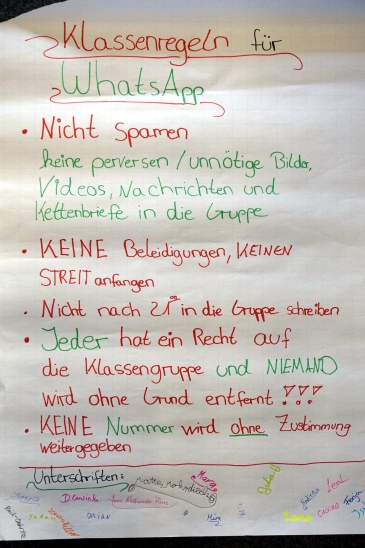 Klassenregeln für
WhatsApp
• Nicht Spamen
keine perversen / unnötige Bilder,
Videos, Nachrichten und
Kettenbriefe in die Gruppe
• KEINE Beleidigungen, KEINEN
STREIT anfangen
• Nicht nach 21⁰⁰ in die Gruppe schreiben
• Jeder hat ein Recht auf
die Klassengruppe und NIEMAND
wird ohne Grund entfernt !!!
• KEINE Nummer wird ohne Zustimmung
weitergegeben
Unterschriften: